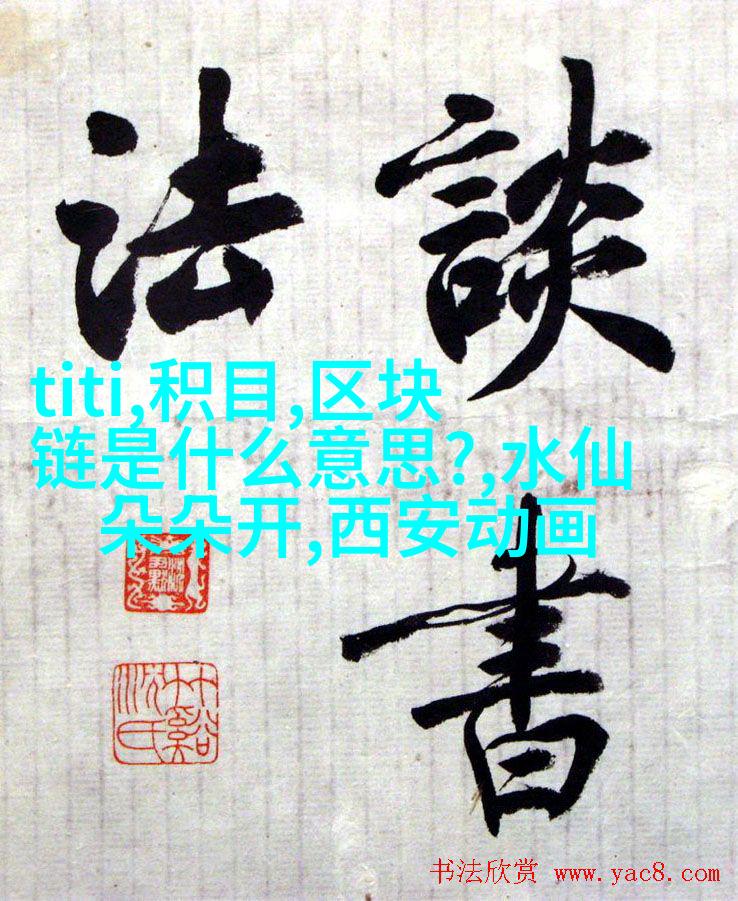 談書
法
titi,积目,区块
链是什么意思?,水仙
朵朵开,西安动画
书法欣赏 www.yac8.com